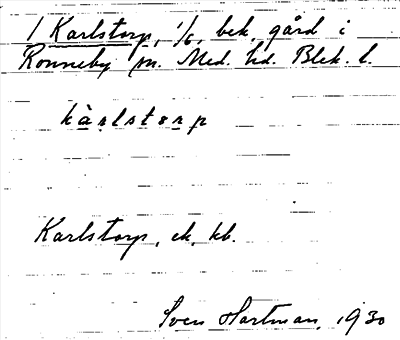 1 Karlstorp, 1/6, bek. gård i
Ronneby sn. Med. hd. Blek. l.
kàrlstorp
Karlstorp, ek, kb.
Sven Hartman, 1930